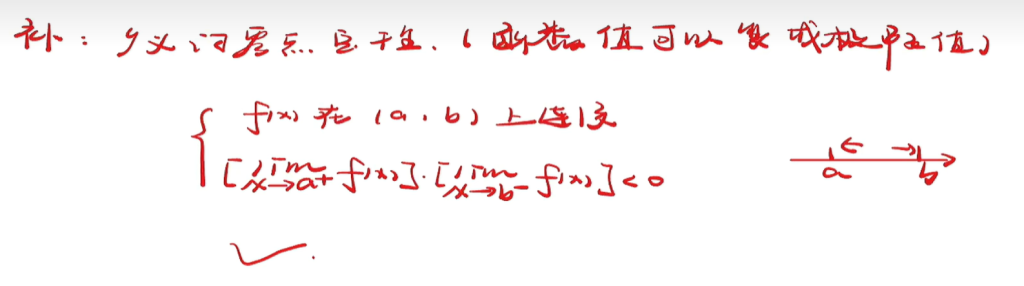 补：广义词零点定理.（函数值可以换成极限值）
f(x) 在 (a, b) 上连续
[lim x→a+ f(x)]·[lim x→b- f(x)] < 0
a b